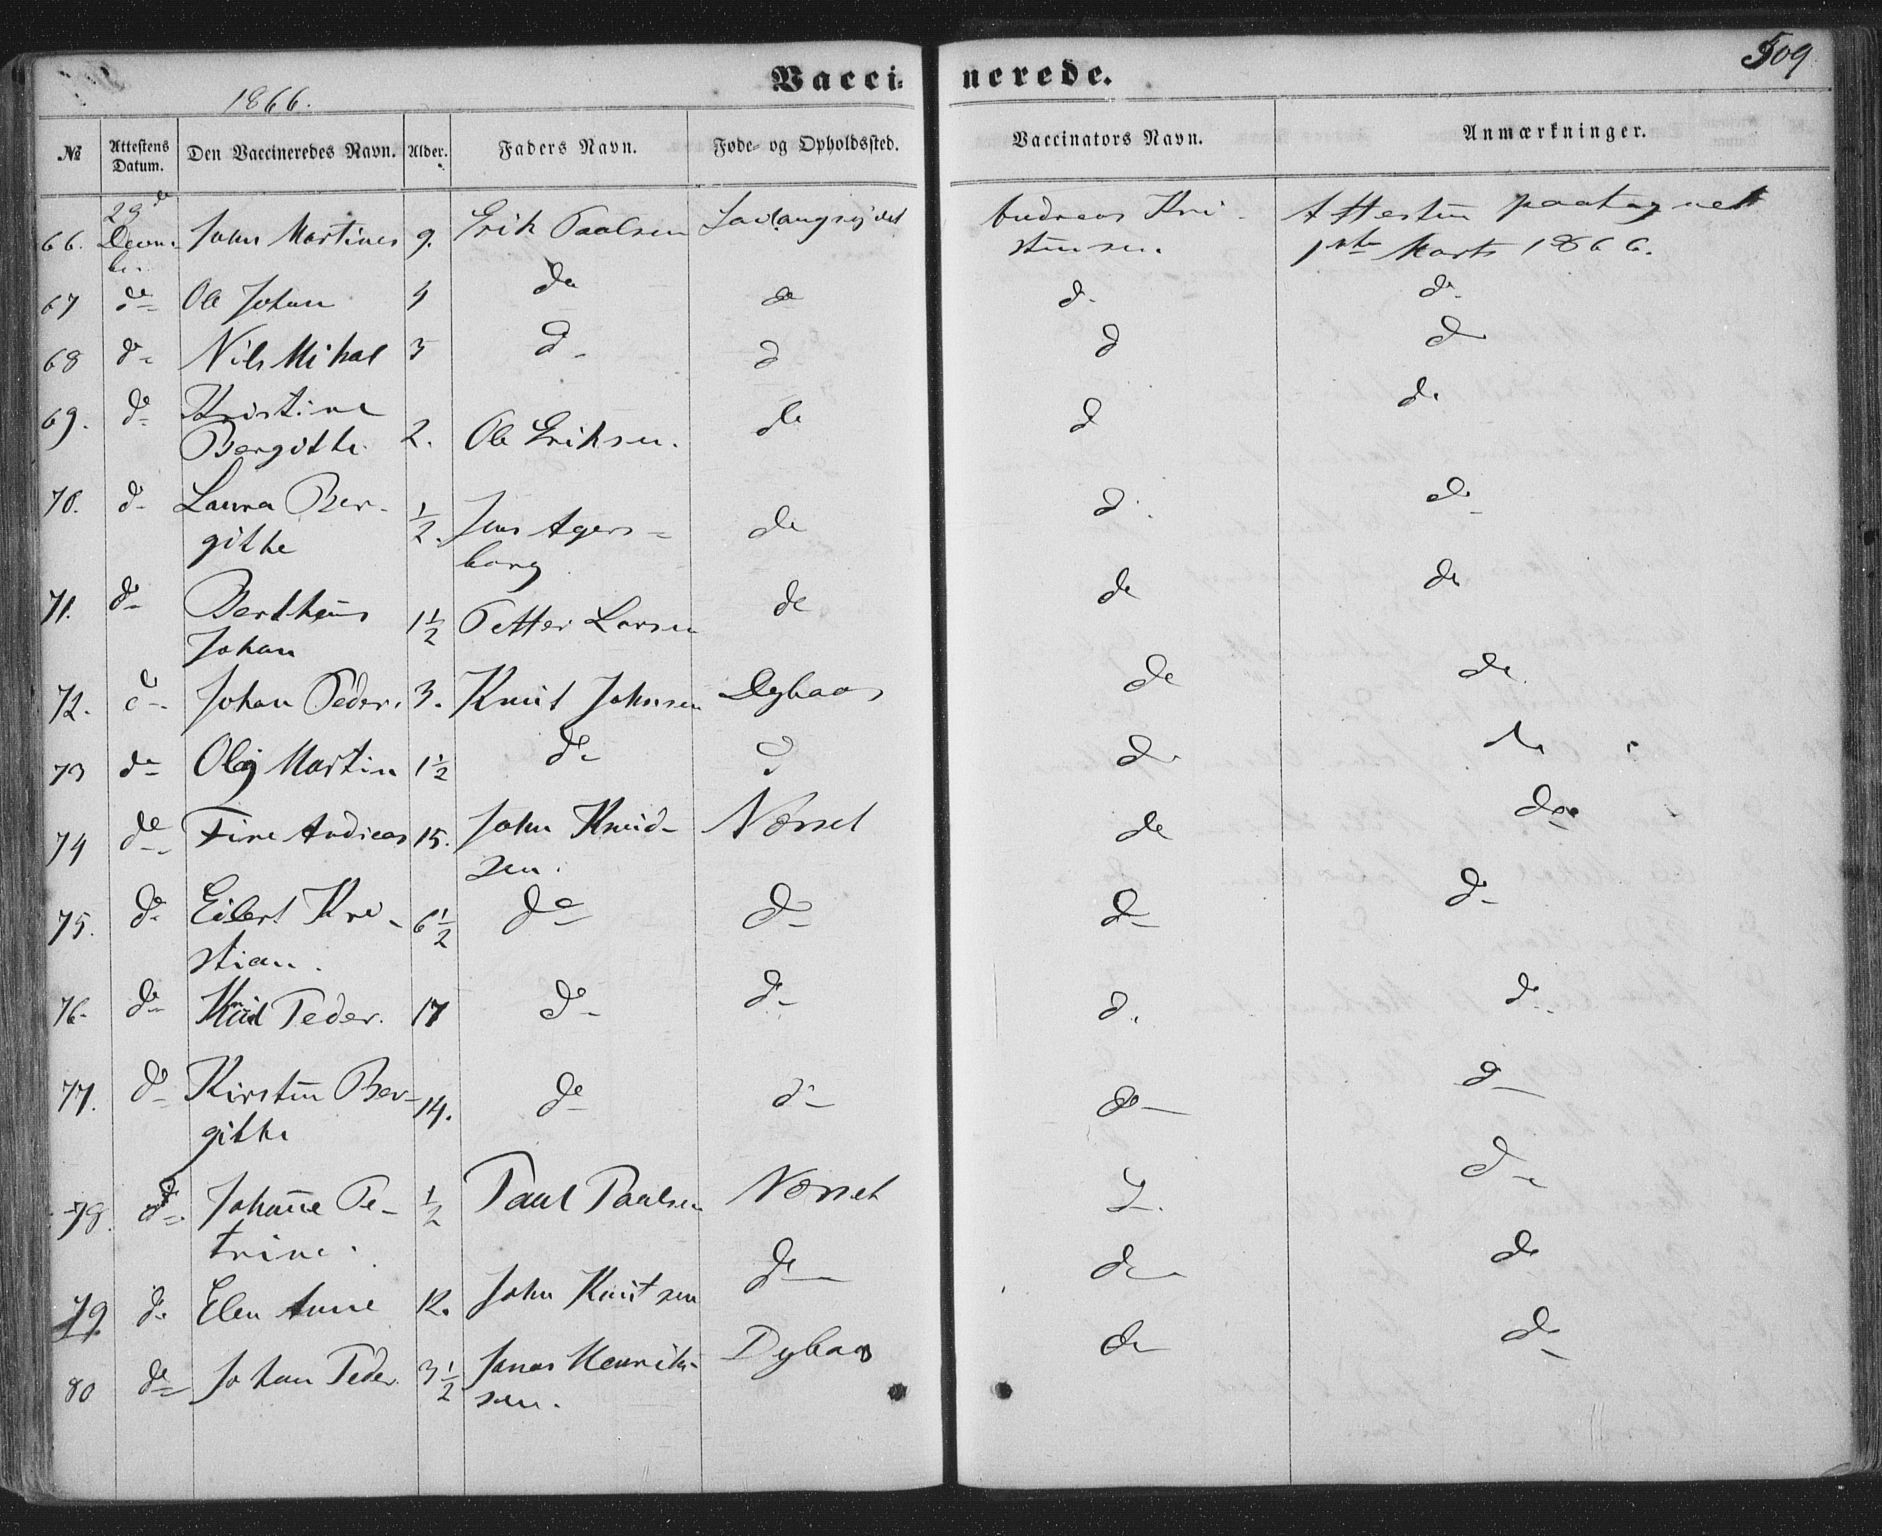 509
Vaccinerede.
1866.
№ Attestens Datum. Den Vaccineredes Navn. Alder. Faders Navn. Føde- og Opholdssted. Vaccinators Navn. Anmærkninger.
29de
66. Decem- John Martines 9. Erik Paalsen Andreas Kri- Attesten
ber stensen. 1ste Marts 1866.
67 do Ole Johan 4 do do do do
68 do Nils Mikal 3 do do do do
69. do Kristine
Bergithe 2. Ole Eriksen. do do do
70. do Laura Ber-
githe 1/2. Jens Agers- do do do
borg
71. do Bertheus
Johan 1 1/2 Petter Larsen do do do
72. do Johan Peder. 3. Knut Johnsen Dybaas do do
73 do Martin 1 1/2 do do do do
74 do Fine Andreas 15. John Knud- Nørset do do
sen.
75. do Eilert Kri- 6 1/2 do do do do
stian.
76. do Knut Peder. 17 do do do do
77. do Kirsten Ber- 14. do do do do
githe
78. do Johanne Pe- 1/2 Paul Paalsen Nørset do do
trine.
79 do Elen Anne 12. John Knutsen do do do
80 do Johan Peder. 3 1/2 Jonas Henrik- Dybaas do do
sen.